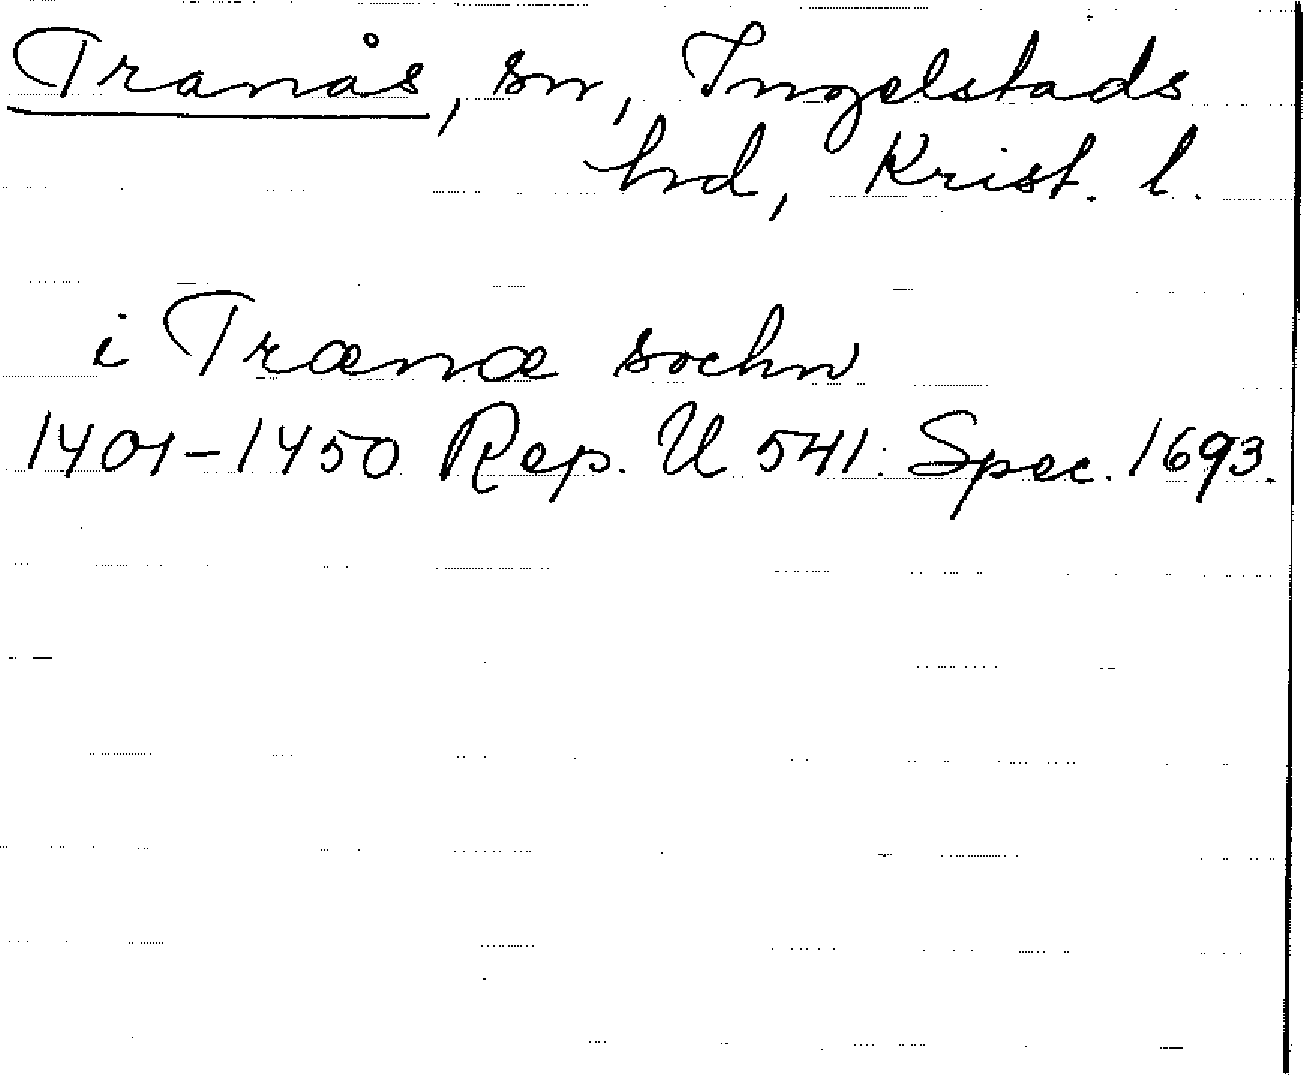 Tranås, sn, Ingelstads
hd, Krist. l.
i Trænæ sochn
1401-1450 Rep. U 541. Spec. 1693.